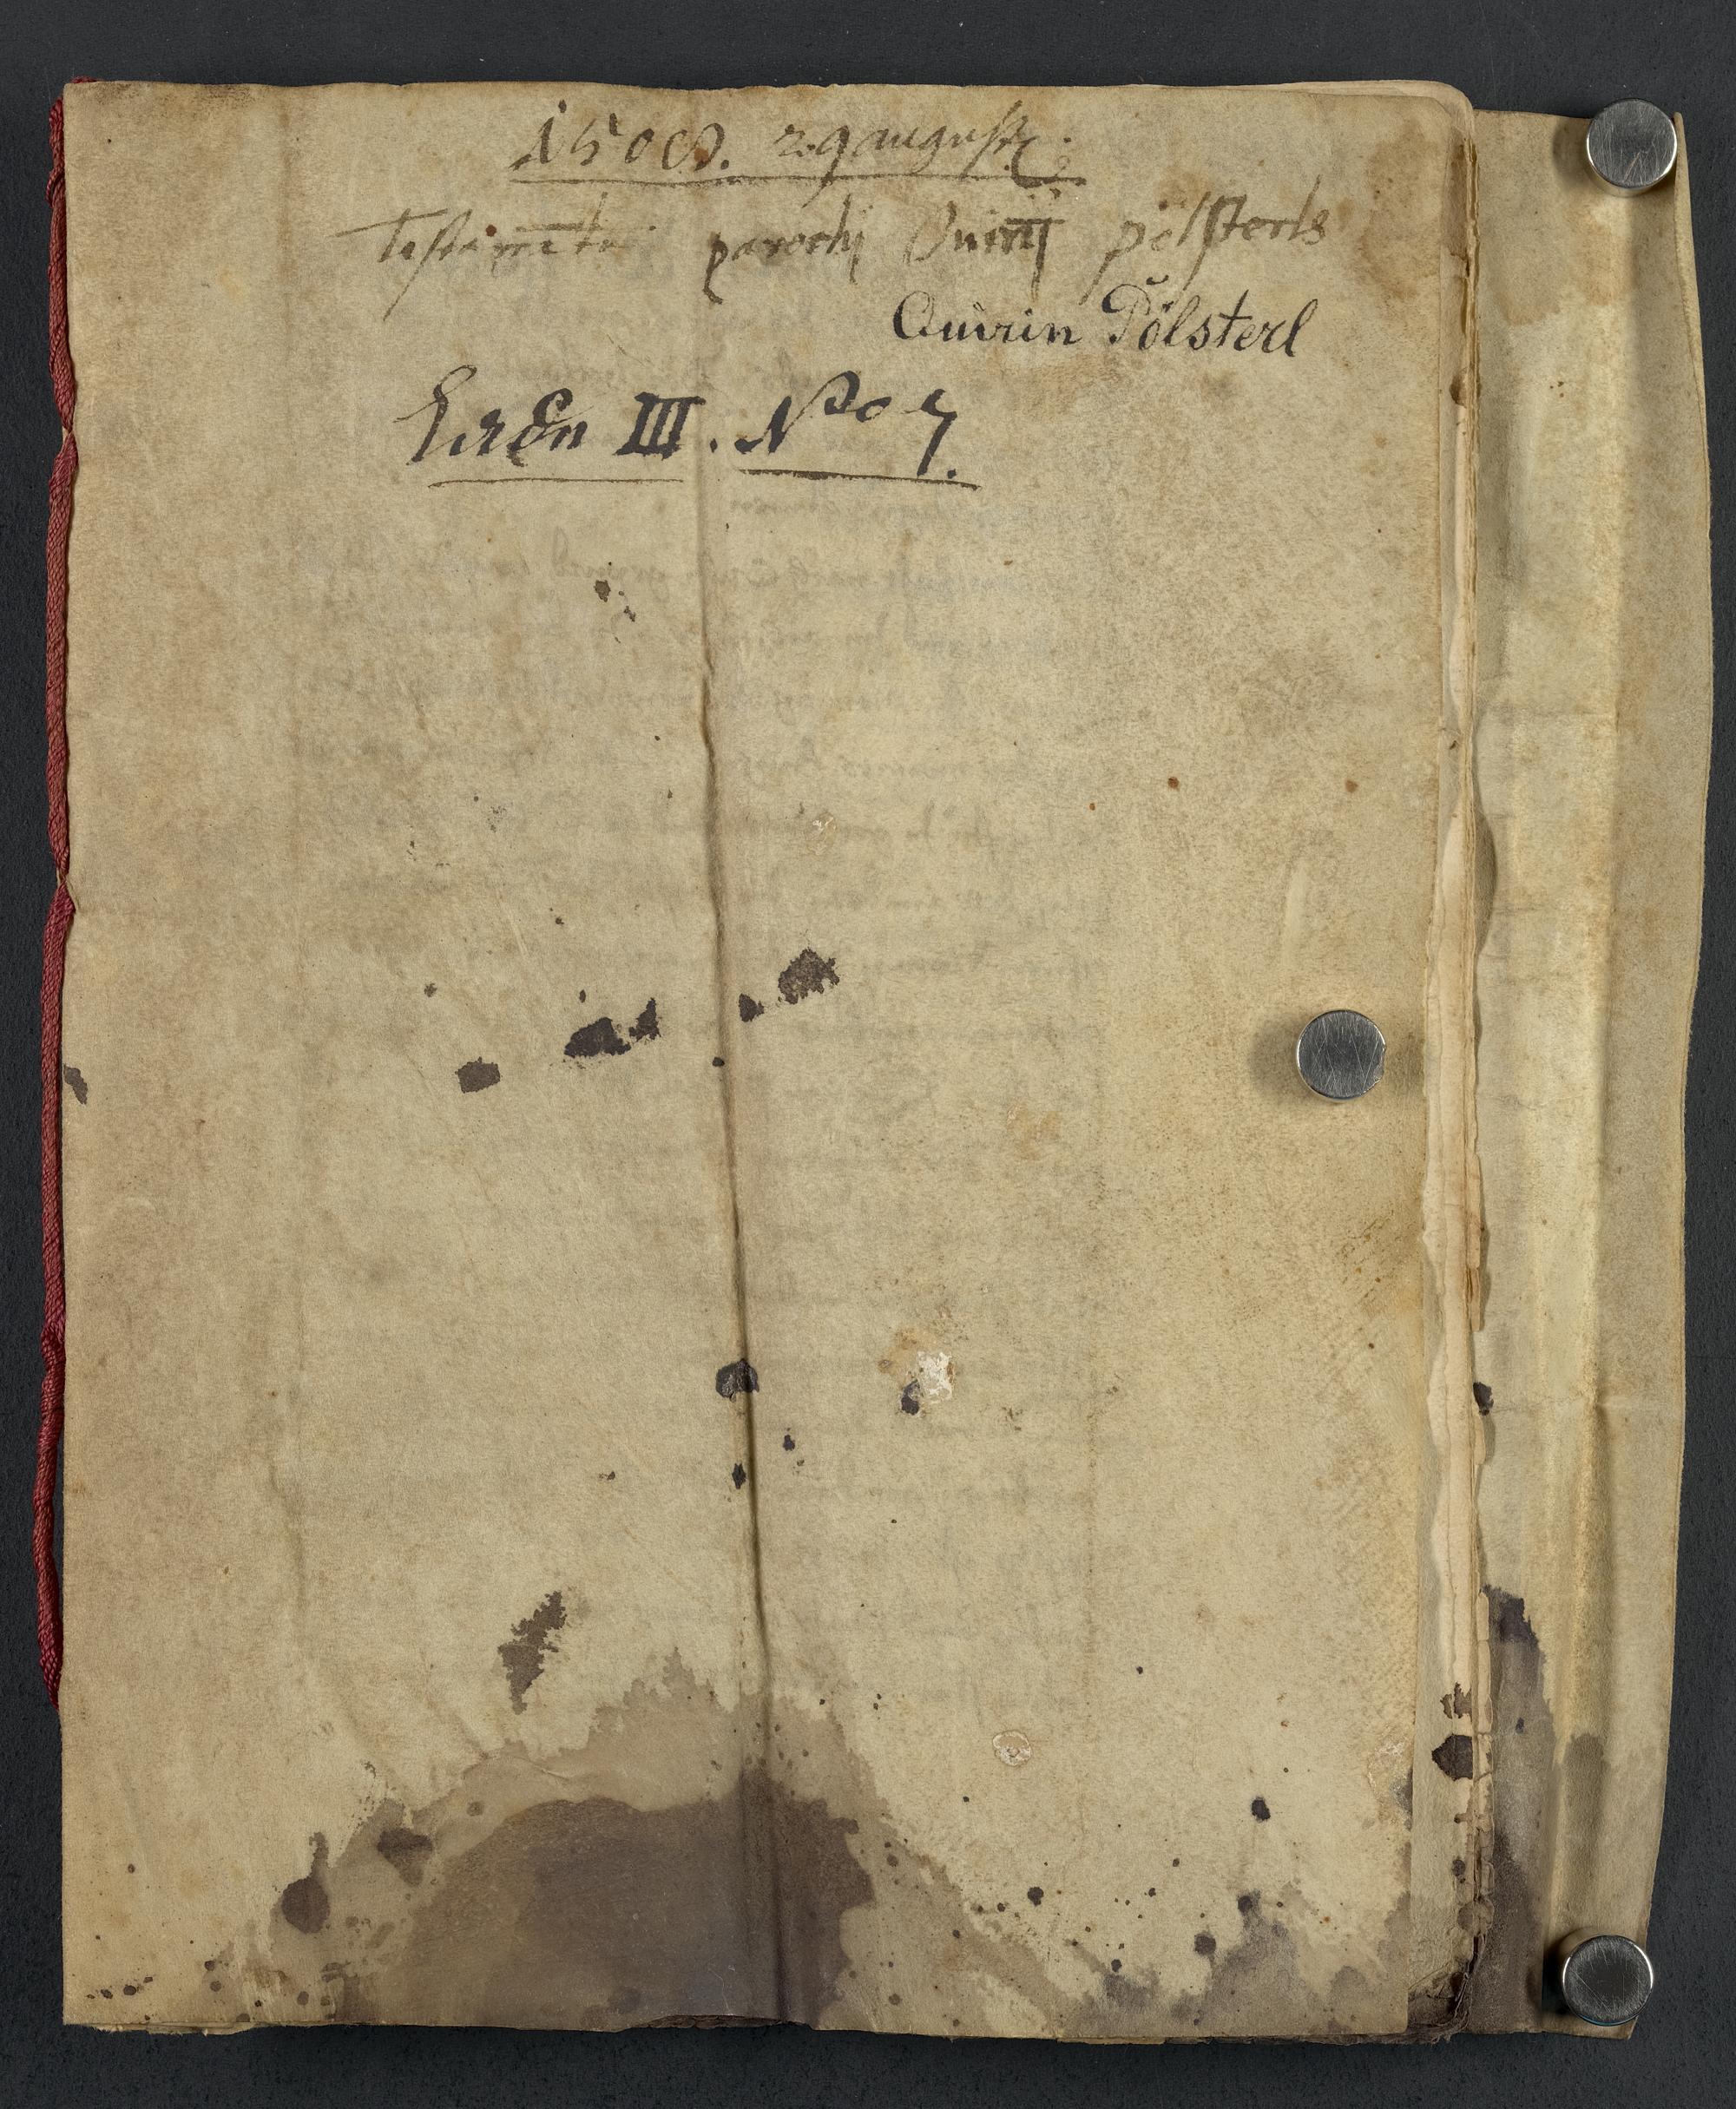 1508. 29 augusti.
Testamentu parochi Quirinj pölsterls
Quirin Pölsterl
III. No 7.